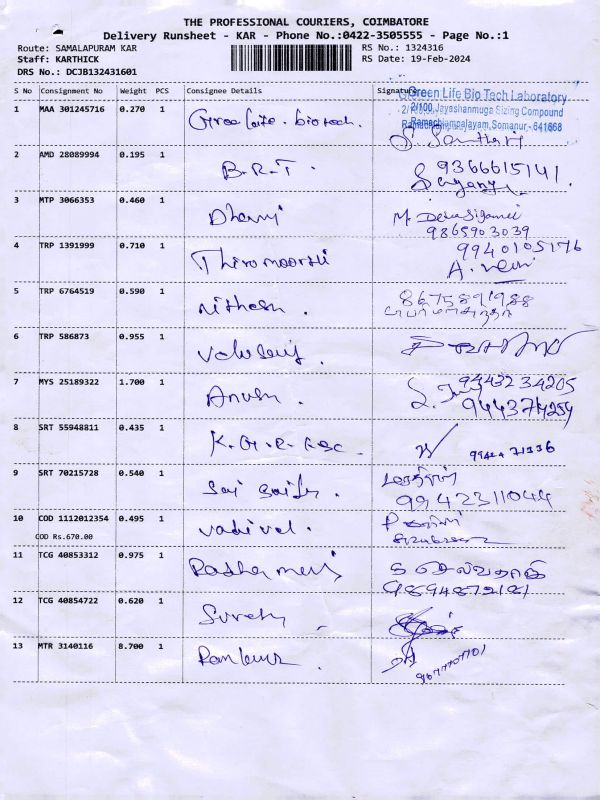 THE PROFESSIONAL COURIERS, COIMBATORE
Delivery Runsheet - KAR - Phone No.:0422-3505555 - Page No.:1
Route: SAMALAPURAM KAR
Staff: KARTHICK
DRS No.: DCJB132431601
RS No.: 1324316
RS Date: 19-Feb-2024
S No Consignment No Weight PCS Consignee Details Signature
Green Life Bio Tech Laboratory
2/100, Jayashanmuga Sizing Compound
Ramachiampalayam, Somanur - 641668
1 MAA 301245716 0.270 1 biotech.
2 AMD 28089994 0.195 1 B.R.T. 9366615141
3 MTP 3066353 0.460 1 Dharnj M. Deivasigamei
9865903039
4 TRP 1391999 0.710 1 Thiromoorthi 9940105176
5 TRP 6764519 0.590 1 nithesh. 8675891988
6 TRP 586873 0.955 1
7 MYS 25189322 1.700 1 Anush. 9443234205
9443774254
8 SRT 55948811 0.435 1 K.G.R. 71336
9 SRT 70215728 0.540 1 Sai
9942311044
10 COD 1112012354 0.495 1 vadivel.
COD Rs.670.00
11 TCG 40853312 0.975 1 க செல்வராஜ்
9894872181
12 TCG 40854722 0.620 1 Suresh
13 MTR 3140116 8.700 1 Ramkumar
9677707701